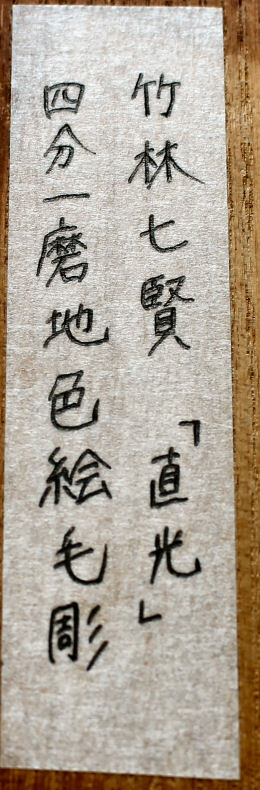 竹林七賢 「直光」
四分一磨地色絵毛彫